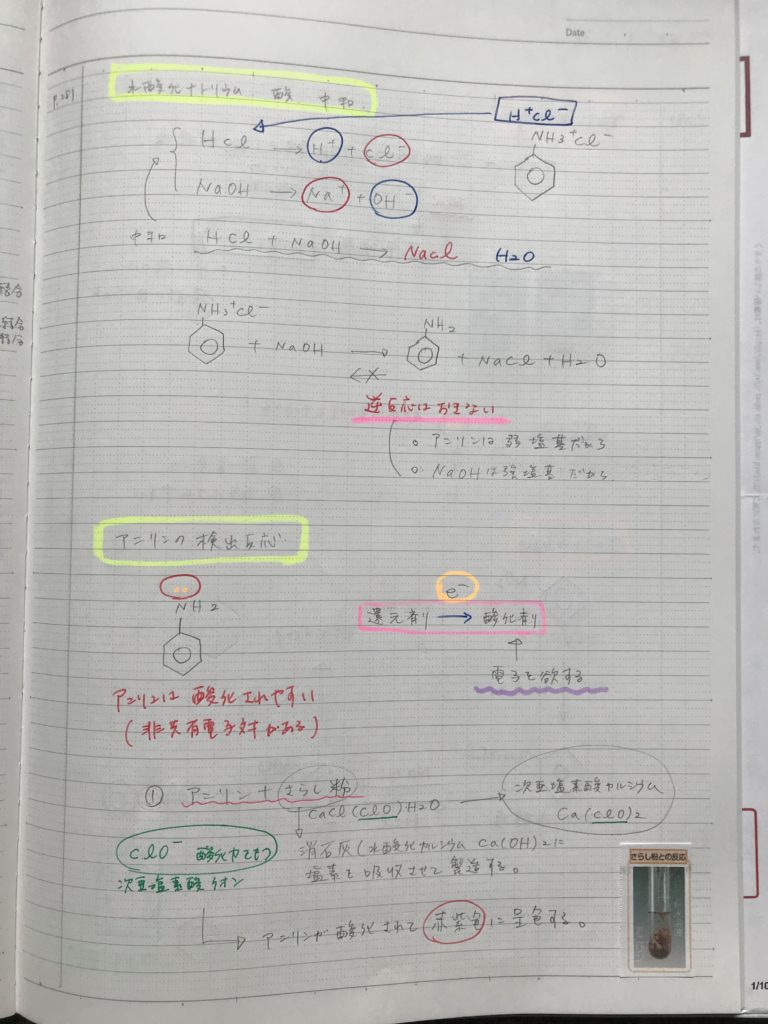 Date
P.281
水酸化ナトリウム 酸 中和
H⁺Cl⁻
HCl → H⁺ + Cl⁻
NH3⁺Cl⁻
NaOH → Na⁺ + OH⁻
中和
HCl + NaOH → NaCl H2O
NH3⁺Cl⁻ + NaOH → NH2 + NaCl + H2O
逆反応はおきない
○ アニリンは弱塩基だから
○ NaOHは強塩基だから
アニリンの検出反応
NH2
e⁻
還元剤 → 酸化剤
電子を欲する
アニリンは酸化されやすい
(非共有電子対がある)
① アニリン + さらし粉
CaCl(ClO)H2O
次亜塩素酸カルシウム
Ca(ClO)2
ClO⁻ 酸化力もつ
次亜塩素酸イオン
消石灰(水酸化カルシウム Ca(OH)2に
塩素を吸収させて製造する。
アニリンが酸化されて赤紫色に呈色する。
さらし粉との反応
1/10